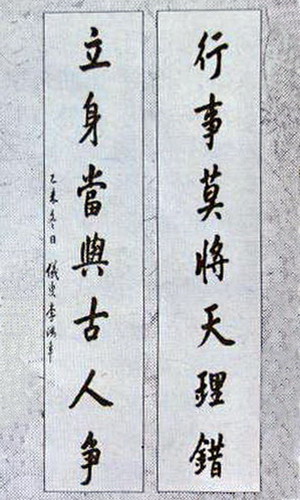 行事莫將天理錯
立身當與古人争
乙未冬日 儀叟李鴻章